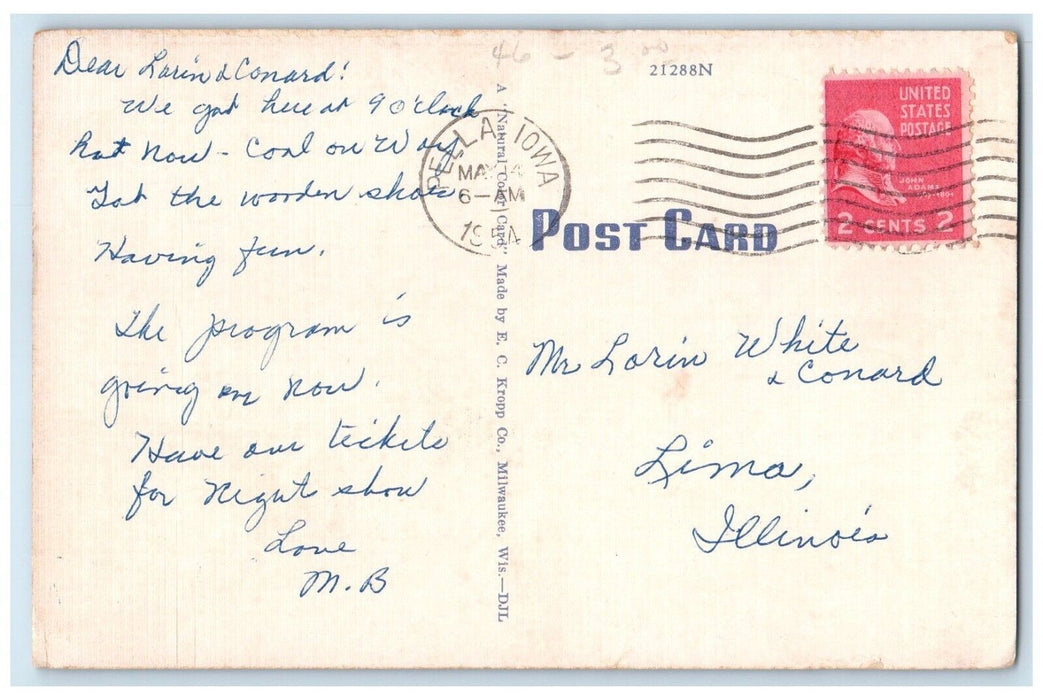 46 - 3.00
21288N
Dear Lorin & Conard!
We got here at 9 o'clock
hot now - Cool on Way
Got the wooden shoes
Having fun.
The program is
going on now.
Have our tickets
for Night show
Love
M.B
PELLA, IOWA
MAY 14
6-AM
1954
UNITED
STATES
POSTAGE
JOHN
ADAMS
2 CENTS 2
A "Natural Color Card" Made by E. C. Kropp Co., Milwaukee, Wis.—DJL
POST CARD
Mr Lorin White
& Conard
Lima,
Illinois